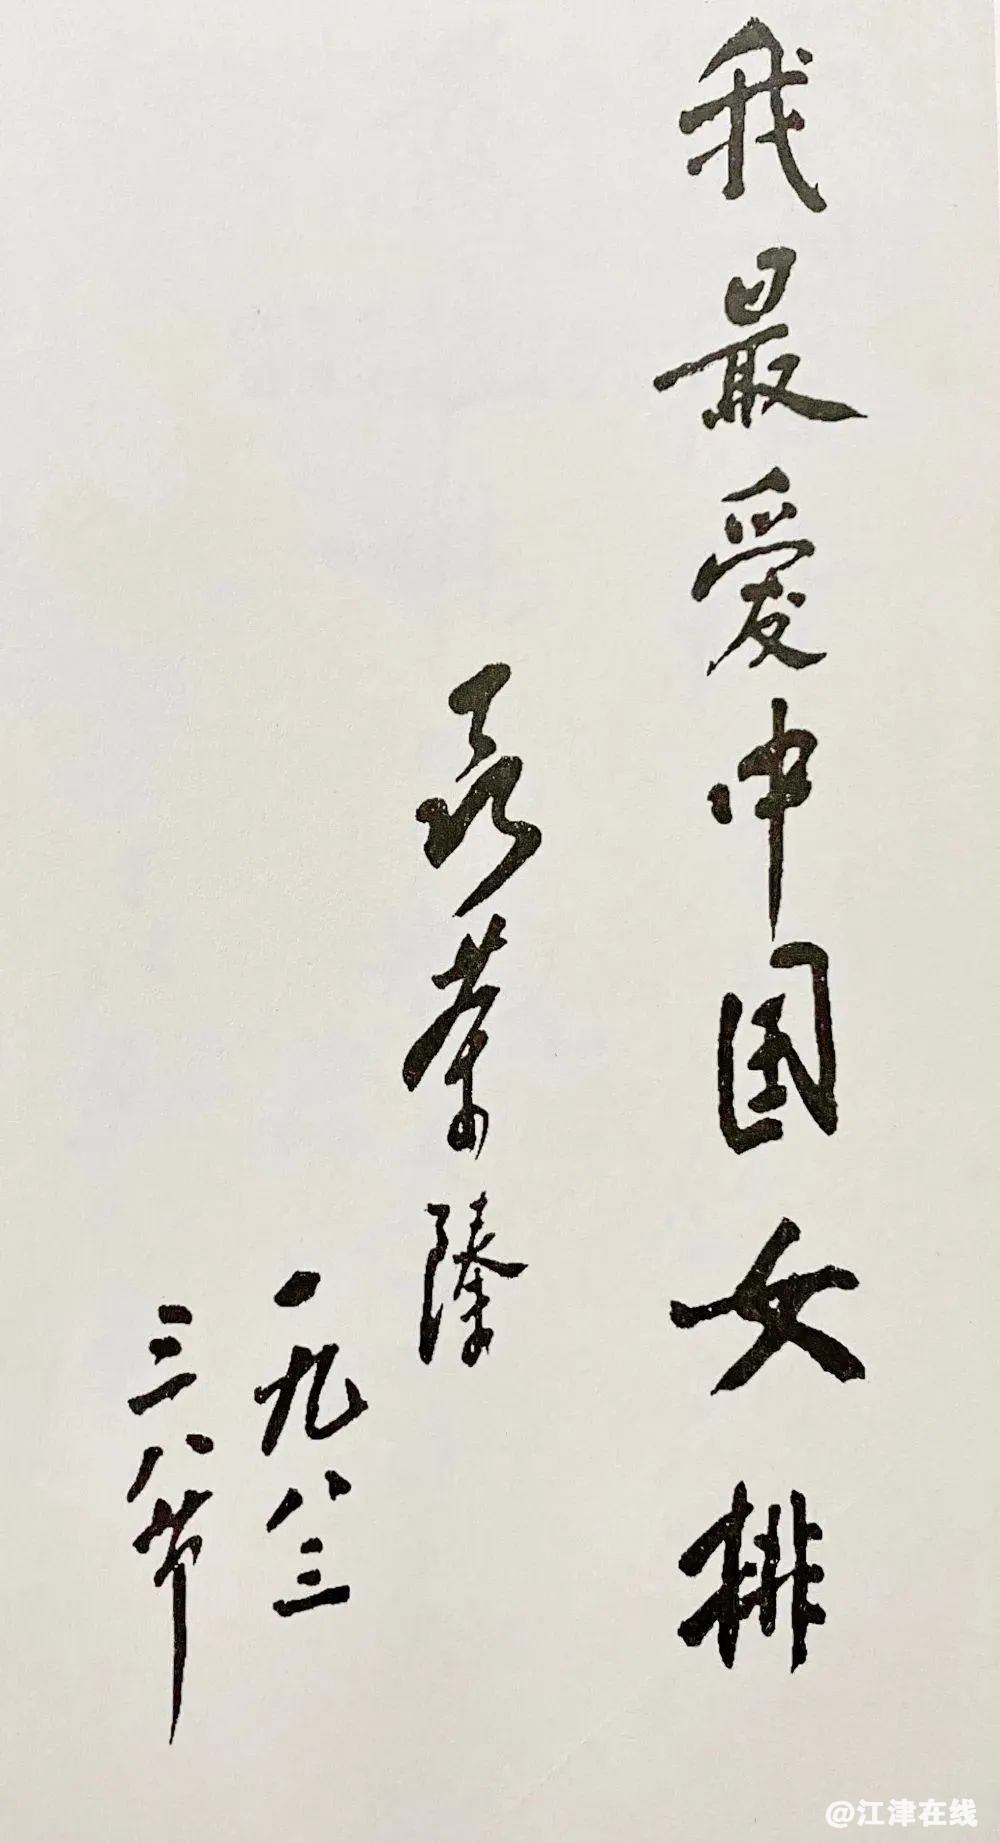 我最爱中国女排
聂荣臻
一九八三
三八节
@江津在线